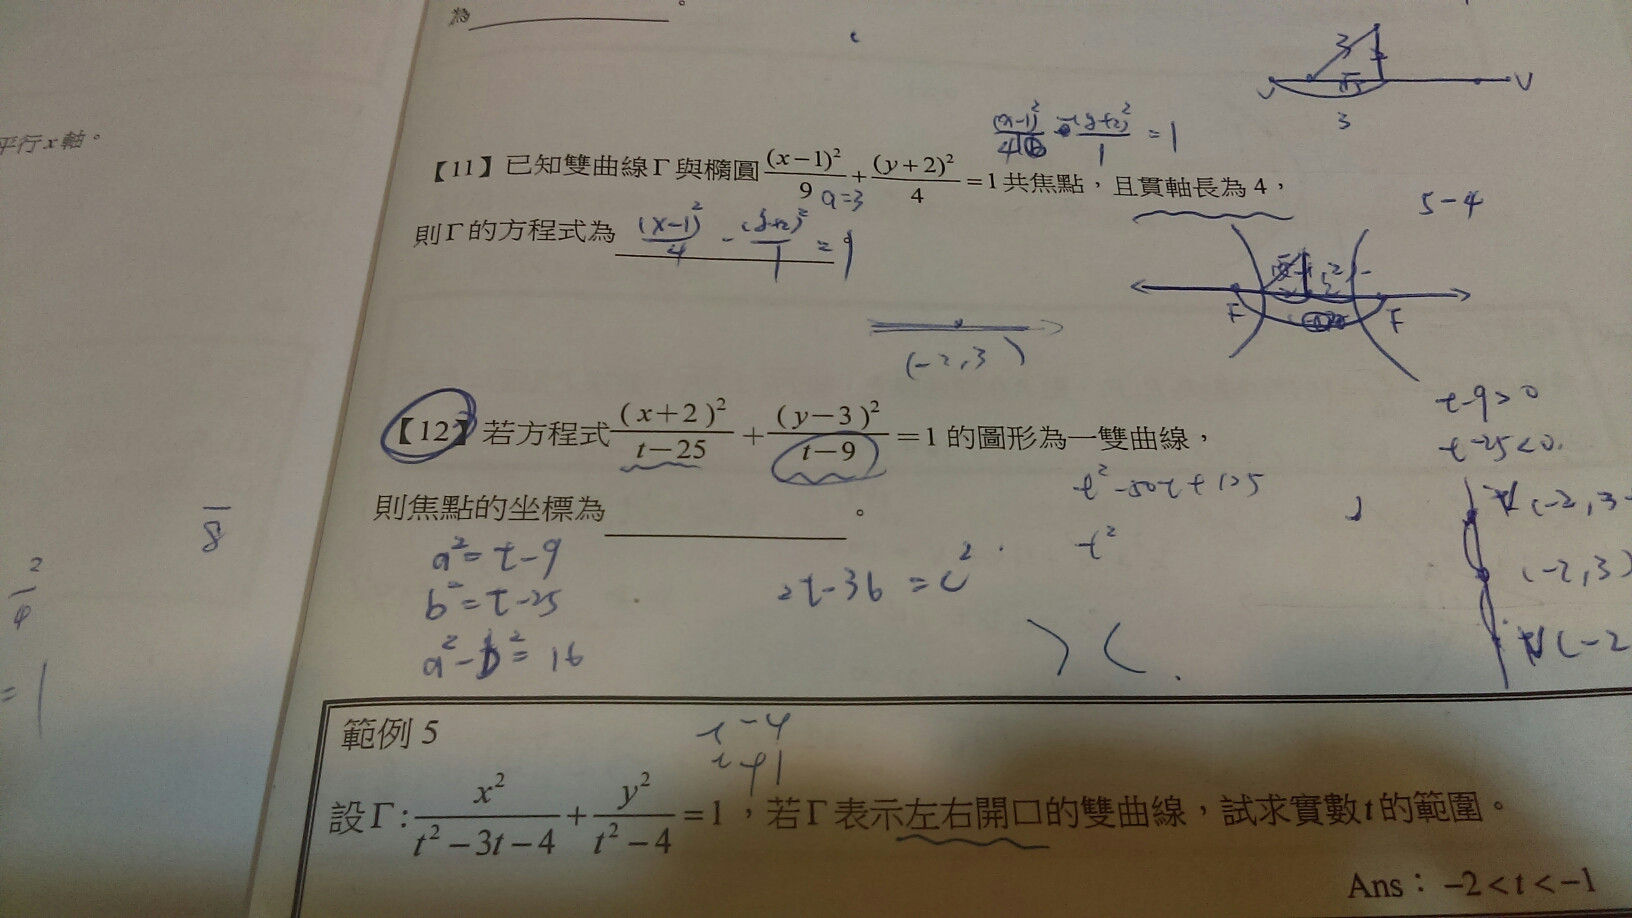 為 。
平行x軸。
3
3
(x-1)²/4 - (y+2)²/1 = 1
【11】已知雙曲線Γ與橢圓 (x-1)²/9 + (y+2)²/4 = 1 共焦點，且貫軸長為4，
a=3
5-4
則Γ的方程式為 (x-1)²/4 - (y+2)²/1 = 1
F F
(-2,3)
t-9>0
t-25<0
【12】若方程式 (x+2)²/(t-25) + (y-3)²/(t-9) = 1 的圖形為一雙曲線，
t²-50t+125
則焦點的坐標為 。
t²
(-2,3
(-2,3)
(-2
a²=t-9
b²=t-25
2t-36=c²
a²-b²=16
8
2
4
=1
範例 5
t-4
t+1
設Γ: x²/(t²-3t-4) + y²/(t²-4) = 1，若Γ表示左右開口的雙曲線，試求實數t的範圍。
Ans：-2<t<-1